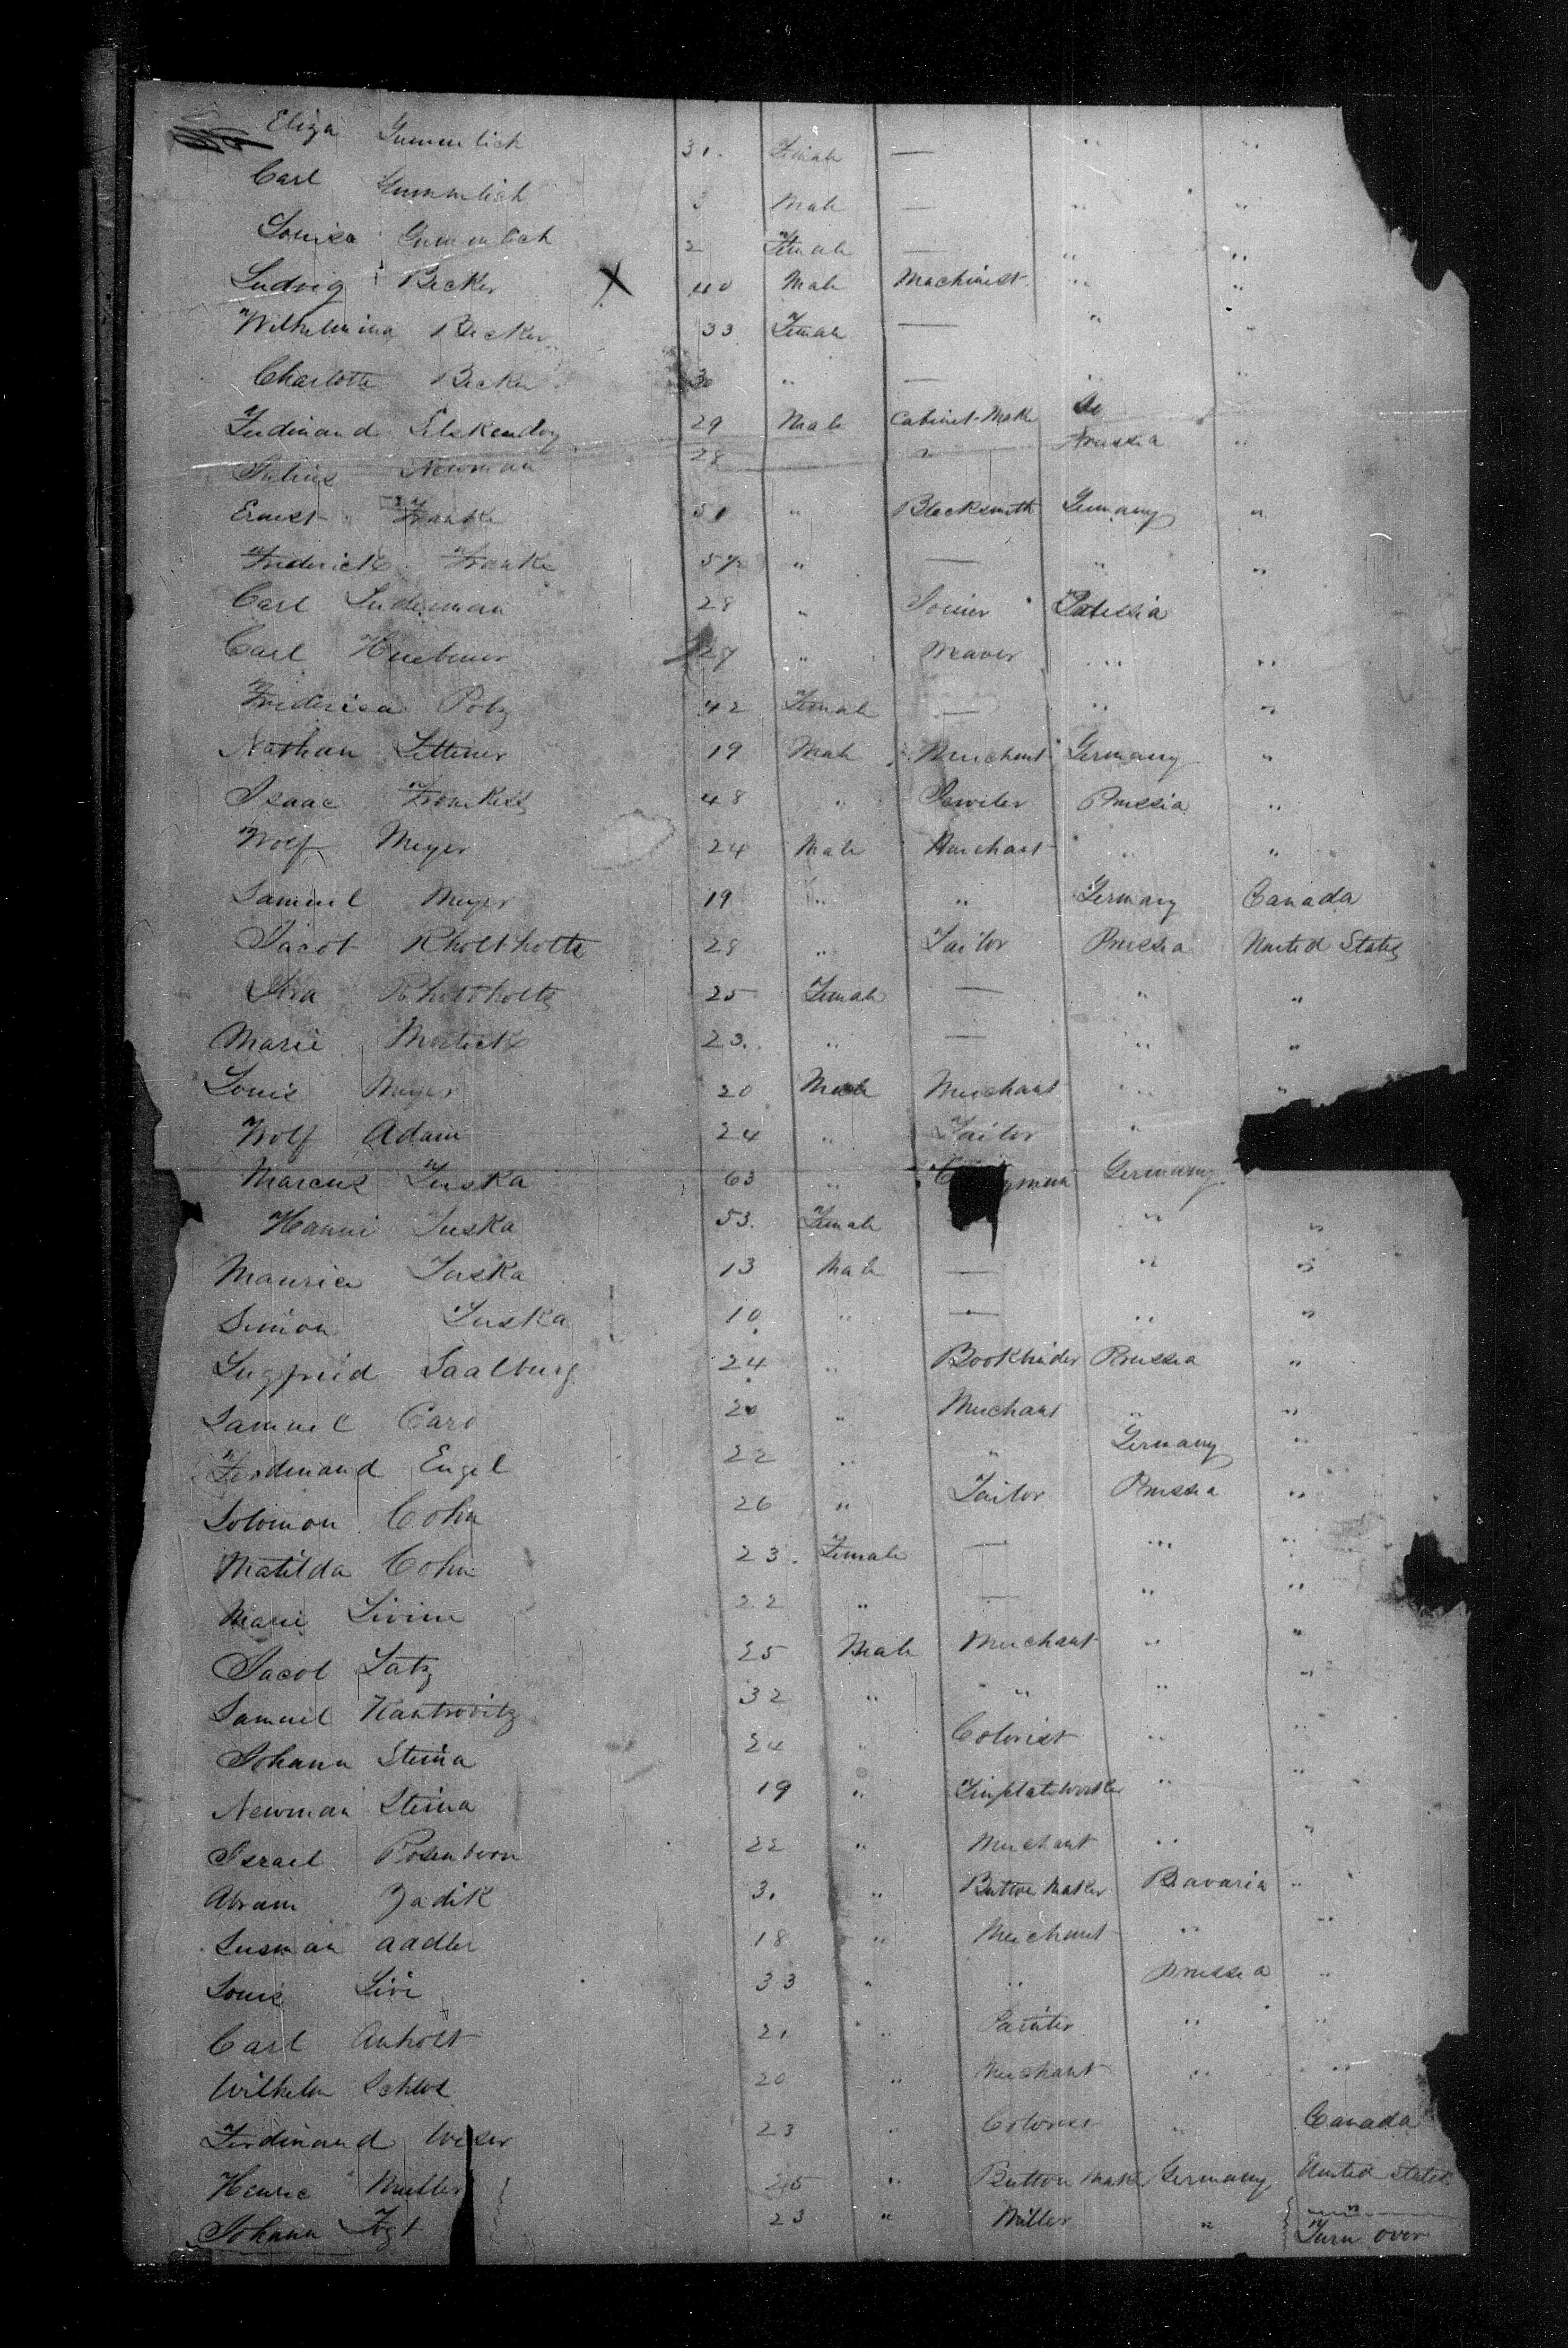 Eliza Gummlich 31. Female — " "
Carl Gummlich 3 Male — " "
Louisa Gummlich 2 Female — " "
Ludvig Becker X 40 Male Machinist " "
Wilhelmina Becker 33 Female — " "
Charlotte Becker 30 " — " "
Ferdinand 29 Male Cabinet-Maker Do
Julius Newman 28 " Prussia "
Ernest Franke 51 " Blacksmith Germany "
Frederick Franke 57 " — " "
Carl Luderman 28 " Joiner
Carl Huebner 27 " Weaver " "
Frederica Polz 42 Female — " "
Nathan 19 Male Merchant Germany "
Isaac 48 " Prussia "
Wolf Meyer 24 Male Merchant " "
Samuel Meyer 19 " " Germany Canada
Jacob Rholtholtz 28 " Tailor Prussia United States
Rholtholtz 25 Female — " "
Marie 23. " — " "
Louis Meyer 20 Male Merchant " "
Wolf Adam 24 " Tailor "
Marcus Tuska 63 " Germany
Hanni Tuska 53. Female " "
Maurice Tuska 13 Male — " "
Simon Tuska 10 " — " "
Sugfried Saalburg 24 " Bookbinder Prussia "
Samuel Caro 20 " Merchant " "
Ferdinand Engel 22 " " Germany "
Solomon Cohn 26 " Tailor Prussia "
Matilda Cohn 23. Female — " "
Marie Livine 22 " — " "
Jacob Latz 25 Male Merchant " "
Samuel Kantrovitz 32 " " " "
Johann Steina 24 " Colorist " "
Newman Steina 19 " Tinplateworker " "
Israel Rosenborn 22 " Merchant " "
Abram Zadik 31 " Button Maker Bavaria "
Susman Aadler 18 " Merchant " "
Louis Livi 33 " " Prussia "
Carl Anholt 21 " Painter " "
Wilhelm 20 " Merchant " "
Ferdinand Weser 23 " Colorist " Canada
Henrie Muller 25 " Button Maker Germany United States
Johann Fogt 23 " Miller " "
Turn over